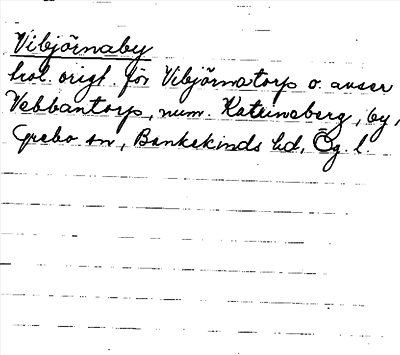 Vibjörnaby
trol. origt för Vibjörnatorp o. avser
Vebbantorp, num. Katrineberg, by,
Grebo sn, Bankekinds hd, Ög. l.